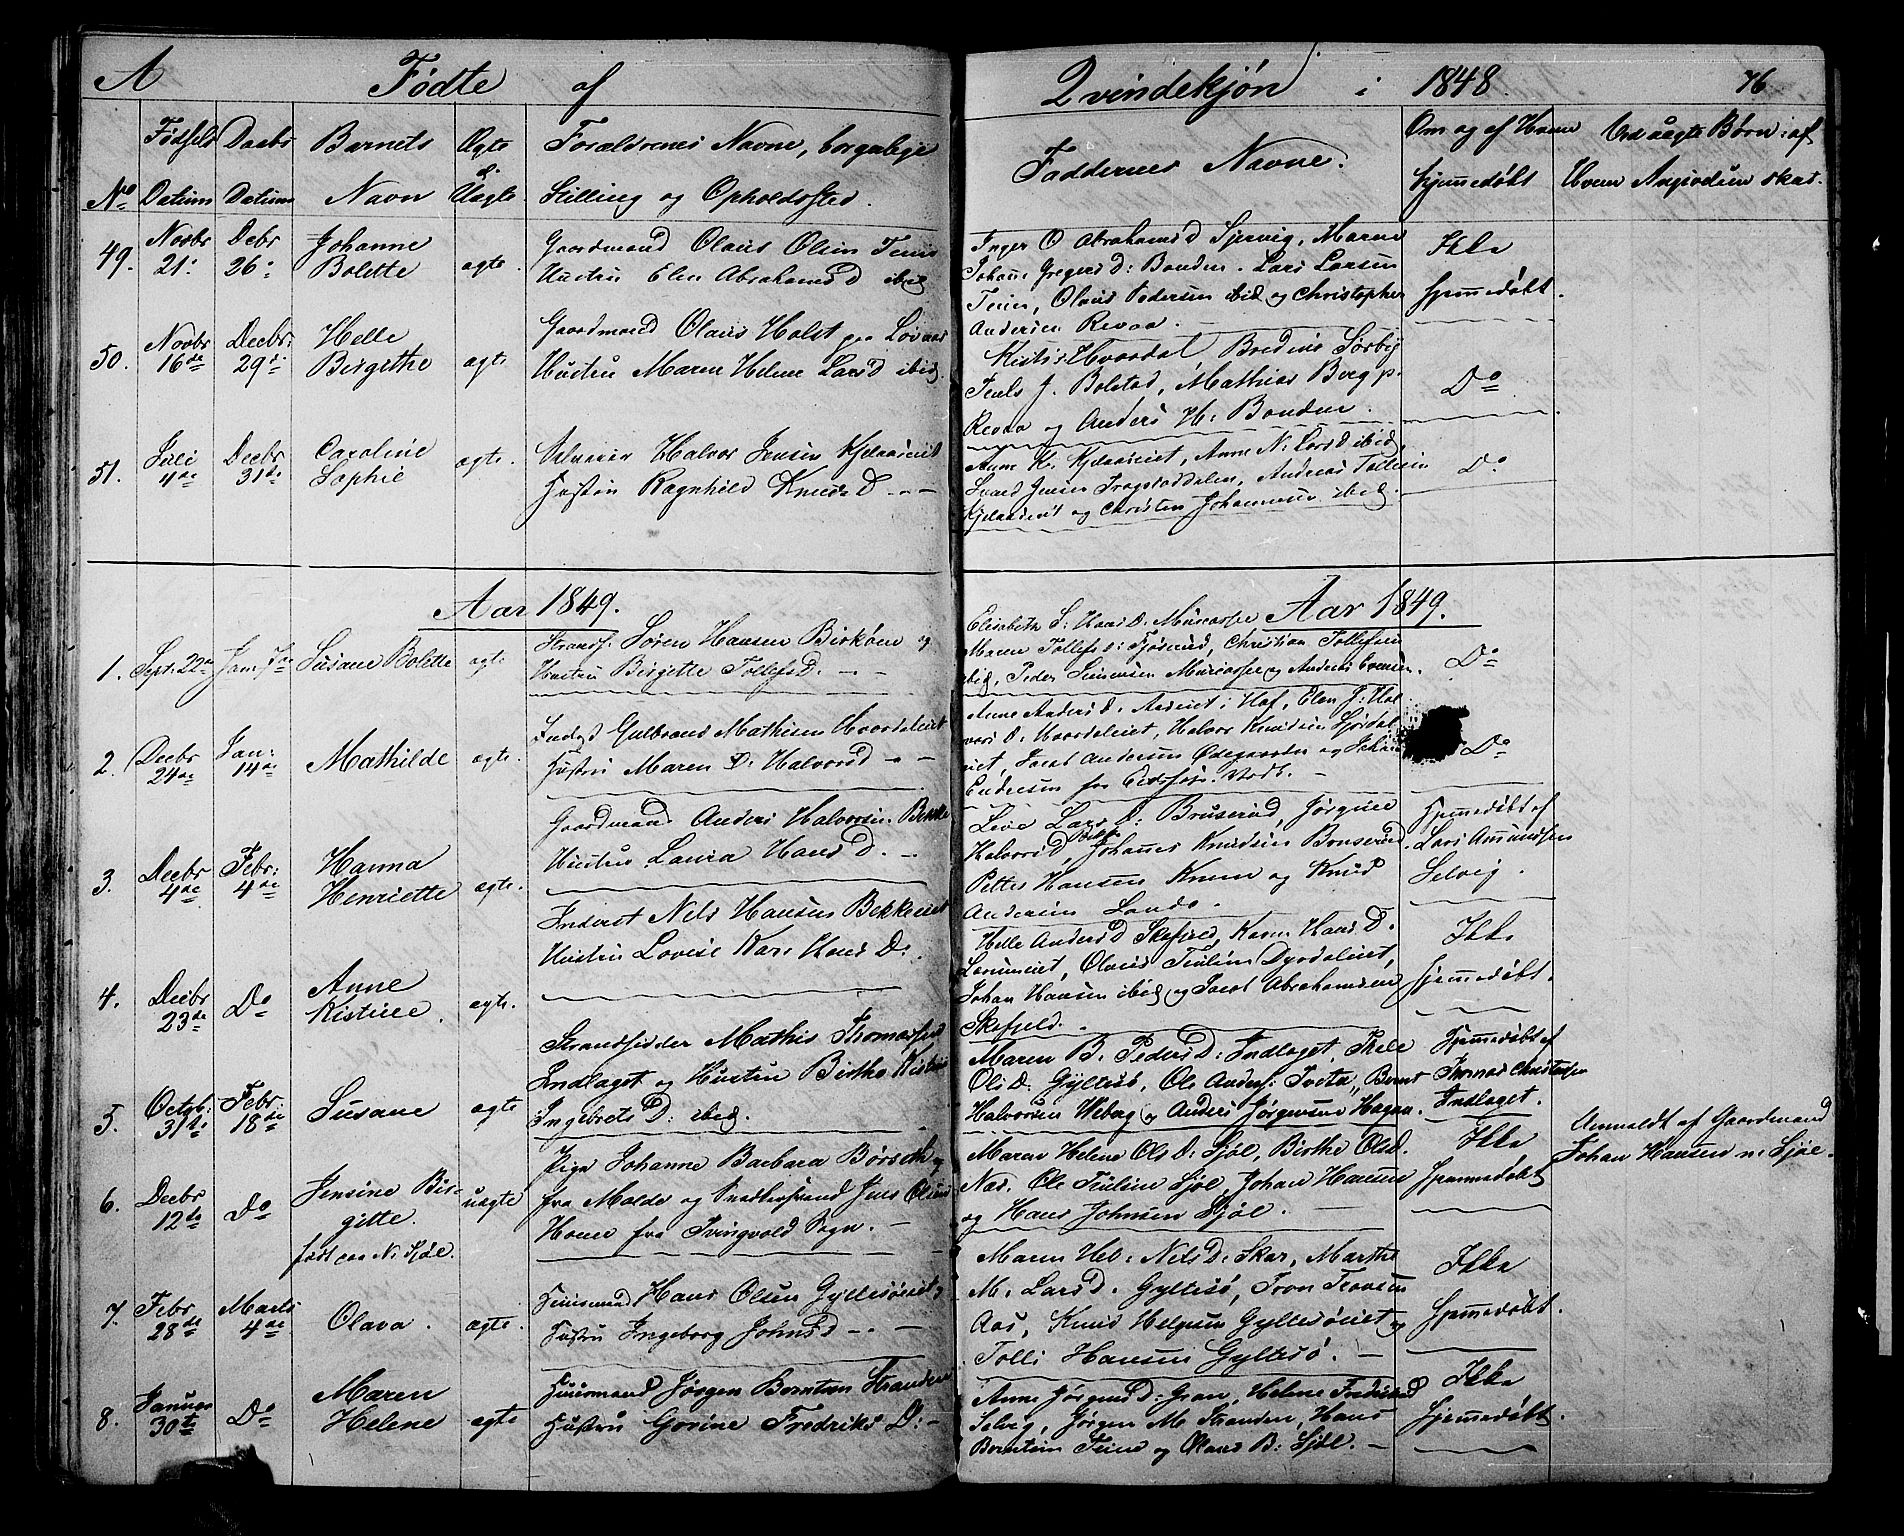 A Fødte af Qvindekjøn i 1848. 76
No Fødsels Datum Daabs Datum Barnets Navn Ægte el. Uægte Forældrenes Navne, borgerlige Stilling og Opholdssted. Faddernes Navne. Om og af Hvem hjemmedøbt Ved uægte Børn: af Hvem Angivelsen skat.
49. Novbr 21. Debr 26. Johanne Bolette ægte.
Gaardmand Olaus Olsen Teien
Hustru Elen Abrahamsd ibid
Inger O Abrahamsd Sjervig, Maren
Johanne Gregersd: Bonden. Lars Larsen
Teien, Olaus Pedersen ibid og Christopher
Andersen Revaa.
Ikke
hjemmedøbt.
50. Novbr 16de Decbr: 29d: Helle Birgithe ægte
Gaardmand Olaus Holst paa Løvaas
Hustru Maren Helene Larsd ibid
Hvordal Bredine Sørby
J. Bolstad, Mathias Berg p.
Revaa og Anders H: Bonden.
Do
51. Juli 4de Decbr 31de Caroline Sophie ægte.
Halvor Jensen
Hustru Ragnhild Knuds D. - -
Anne K. Anne N: Larsd ibid,
Jensen Andreas Tollefsen
og Christen Johannesen ibid.
Do
Aar 1849. Aar 1849.
1. Sept: 22de Jan: 7de Susane Bolette ægte
Strands: Søren Hansen Birkøen og
Hustru Birgitte Tollefs D. - -
Elisabeth S: Hans D:
Maren Tollefs D: Christian Tollefsen
ibid, Peder Simensen og Anders Evensen.
Do
2. Decbr 24de Jan: 14de Mathilde ægte.
Inderst Gulbrand Mathisen Hvordaleiet
Hustru Maren D: Halvorsd - -
Anne Anders D: i Hof, Elen J: Hal-
vors D: Hvordaleiet, Halvor Knudsen
Jacob Andersen Ødegaarden og Johan
Endresen fra
Do
3. Decbr 4de Febr: 4de Hanna Henriette ægte.
Gaardmand Anders Halvorsen Bekke
Hustru Laura Hans D. -
Live Lars D: Bruserud, Jørgine
Halvorsd Bekke, Johannes Knudsen Bruserud.
Petter Hansen Knem og Knud
Andersen Lande.
Hjemmedøbt af
Lars Amundsen
Selvig.
4. Decbr 23de Do Anne Kistine ægte.
Inderst Nels Hansen Bekkeeiet
Hustru Lovise Kar: Hans D.
Helle Andersd Skafjeld, Karen Hans D.
Olaus Dyrdaleiet,
Johan Hansen ibid og Jacob Abrahamsen
Skafjeld.
Ikke
hjemmedøbt.
5. Octob: 31te Febr 18de Susane ægte
Strandsidder Mathis Thomassen
Indlaget og Hustru Birthe Kistine
Ingebrets D: ibid.
Maren B. Peders D: Indlaget,
Ols D: Gyltesø, Ole Anders: Tveta, Bernt
Halvorsen Weberg og Anders Jørgensen Hagen.
Hjemmedøbt af
Thomas Christensen
Indlaget.
6. Decbr 12te Do Jensine Bir-
gitte. født paa N: Sjøl. uægte
Pige Johanne Barbara Børseth
fra Molde og Jens Olsen
fra Tvingvold Sogn. -
Maren Helene Ols D: Sjøl, Birthe Olsd.
Næs. Ole Sjøl, Johan Hansen
og Hans Johnsen Sjøl.
Ikke
hjemmedøbt
Anmeldt af Gaardmand
Johan Hansen n: Sjøl.
7. Febr 28de Marts 4de Olava. ægte.
Huusmand Hans Olsen Gyltesøeiet,
Hustru Ingeborg Johnsd - -
Maren Hel: Nels D: Skar, Marthe
M. Lars D. Gyltesø, Tron Tronsen
Aas, Knud Helgesen Gyltesøeiet og
Tolli Hansen Gyltesø. -
Ikke
hjemmedøbt.
8. Januar 30te Do Maren Helene ægte
Huusmand Jørgen Berntsen Stranden
Hustru Govine Fredriks D: -
Anne Jørgens D: Gran, Helene Fredriksd
Selvig, Jørgen M. Stranden, Hans
Berntsen Teine og Olaus B: Sjøl. -
Ikke
hjemmedøbt.